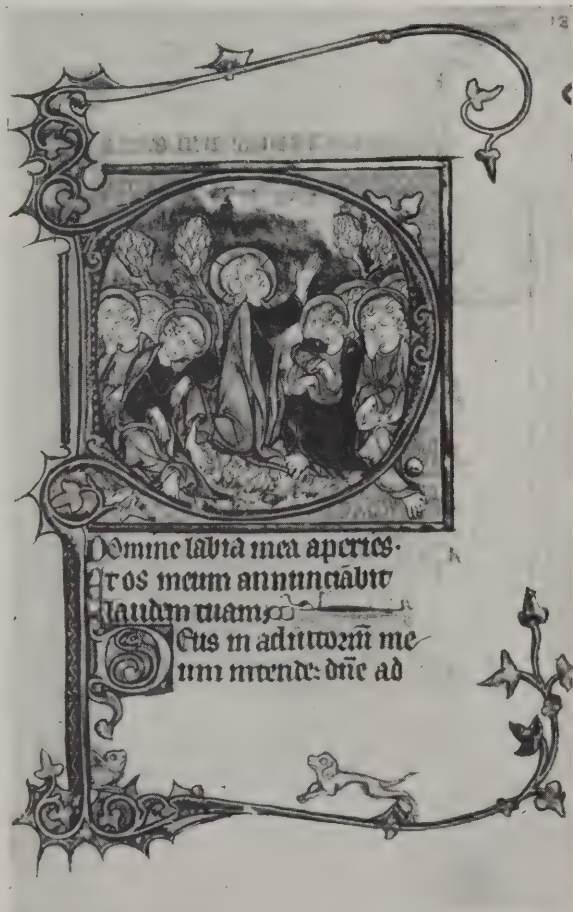 Domine labia mea aperies.
Et os meum annunciabit
laudem tuam
Deus in adiutoriū me
um intende: dn̄e ad